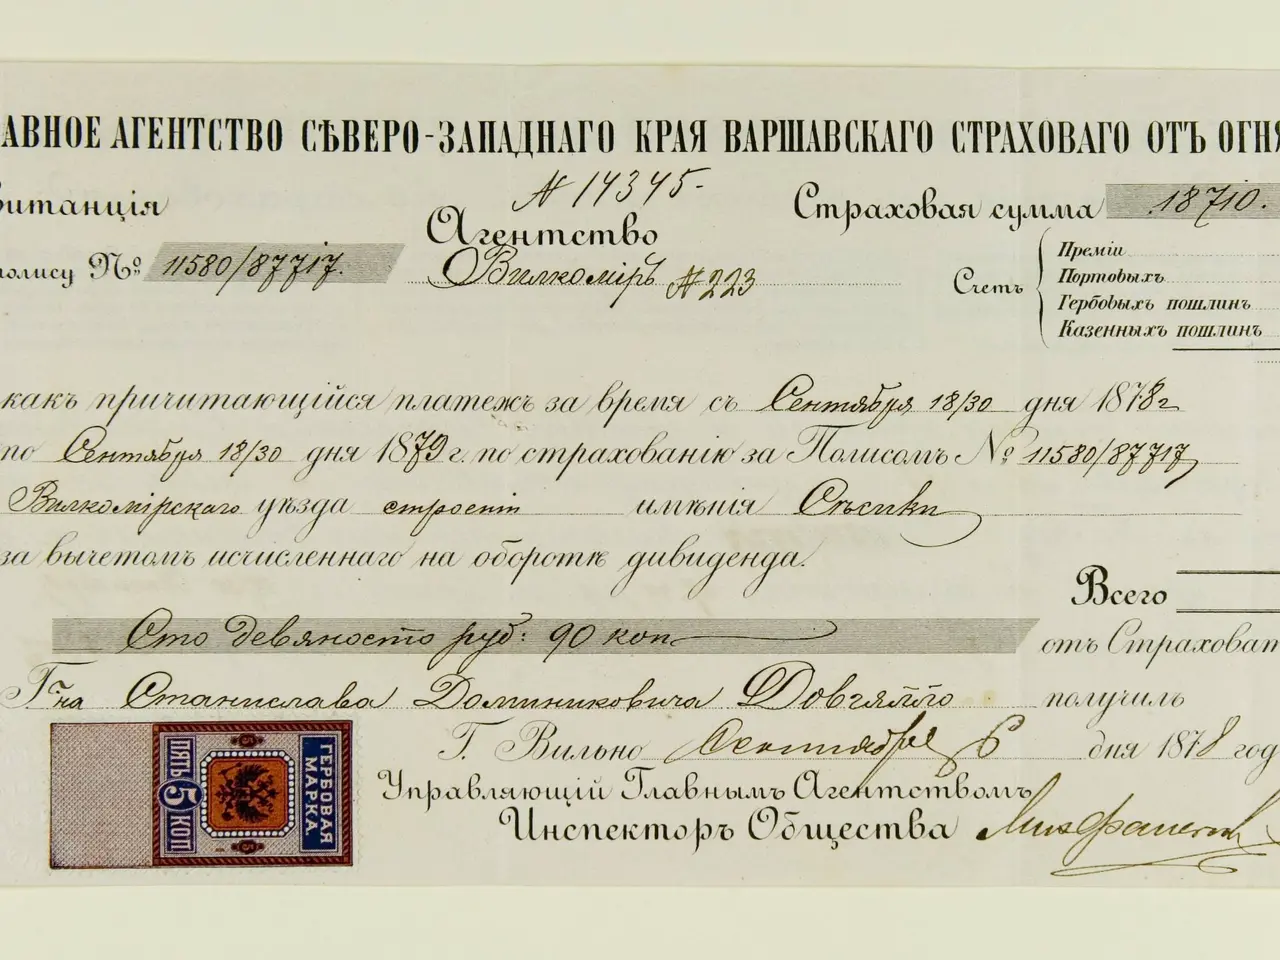 АВНОЕ АГЕНТСТВО СѢВЕРО-ЗАПАДНАГО КРАЯ ВАРШАВСКАГО СТРАХОВАГО ОТЪ ОГНЯ
№ 14345
витанція
Агентство
Страховая сумма 18710.
полису № 11580/87717.
Вилкоміръ № 223
Счетъ
Преміи
Портовыхъ
Гербовыхъ пошлинъ
Казенныхъ пошлинъ
какъ причитающійся платежъ за время съ Сентября 18/30 дня 1878 г
по Сентября 18/30 дня 1879 г. по страхованію за Полисомъ № 11580/87717
Вилкомірскаго уѣзда строеній имѣнія Сѣсики
за вычетомъ исчисленнаго на оборотѣ дивиденда.
Всего
Сто девяносто руб: 90 коп
отъ Страховат
Г на Станислава Доминиковича Довгялло получилъ
Г. Вильно Сентября 6 дня 1878 год
Управляющій Главнымъ Агентствомъ
Инспекторъ Общества
ГЕРБОВАЯ МАРКА.
5
5
ПЯТЬ 5 КОП